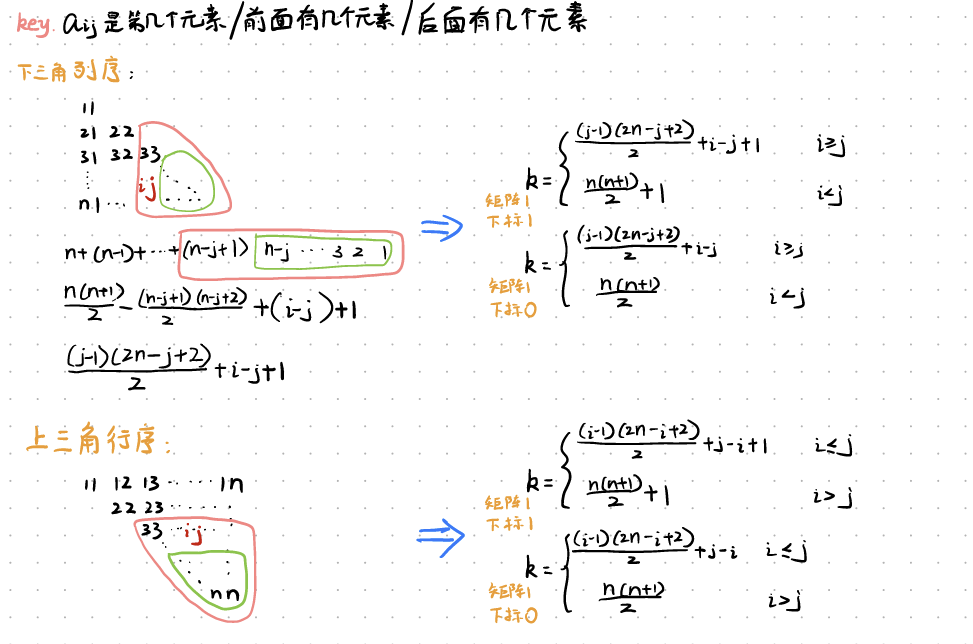 key. aij是第几个元素/前面有几个元素/后面有几个元素
下三角列序:
11
21 22
31 32 33
⋮ ij ⋱
n1 ⋯ ⋯
n+(n-1)+⋯+(n-j+1) n-j ⋯ 3 2 1
n(n+1)/2 - (n-j+1)(n-j+2)/2 + (i-j)+1
(j-1)(2n-j+2)/2 + i-j+1
矩阵1
下标1
k= { (j-1)(2n-j+2)/2 + i-j+1 i≥j
n(n+1)/2 + 1 i<j
矩阵1
下标0
k= { (j-1)(2n-j+2)/2 + i-j i≥j
n(n+1)/2 i<j
上三角行序:
11 12 13 ⋯⋯ 1n
22 23 ⋯⋯
33 ij ⋯
⋱ ⋮
nn
矩阵1
下标1
k= { (i-1)(2n-i+2)/2 + j-i+1 i≤j
n(n+1)/2 + 1 i>j
矩阵1
下标0
k= { (i-1)(2n-i+2)/2 + j-i i≤j
n(n+1)/2 i>j